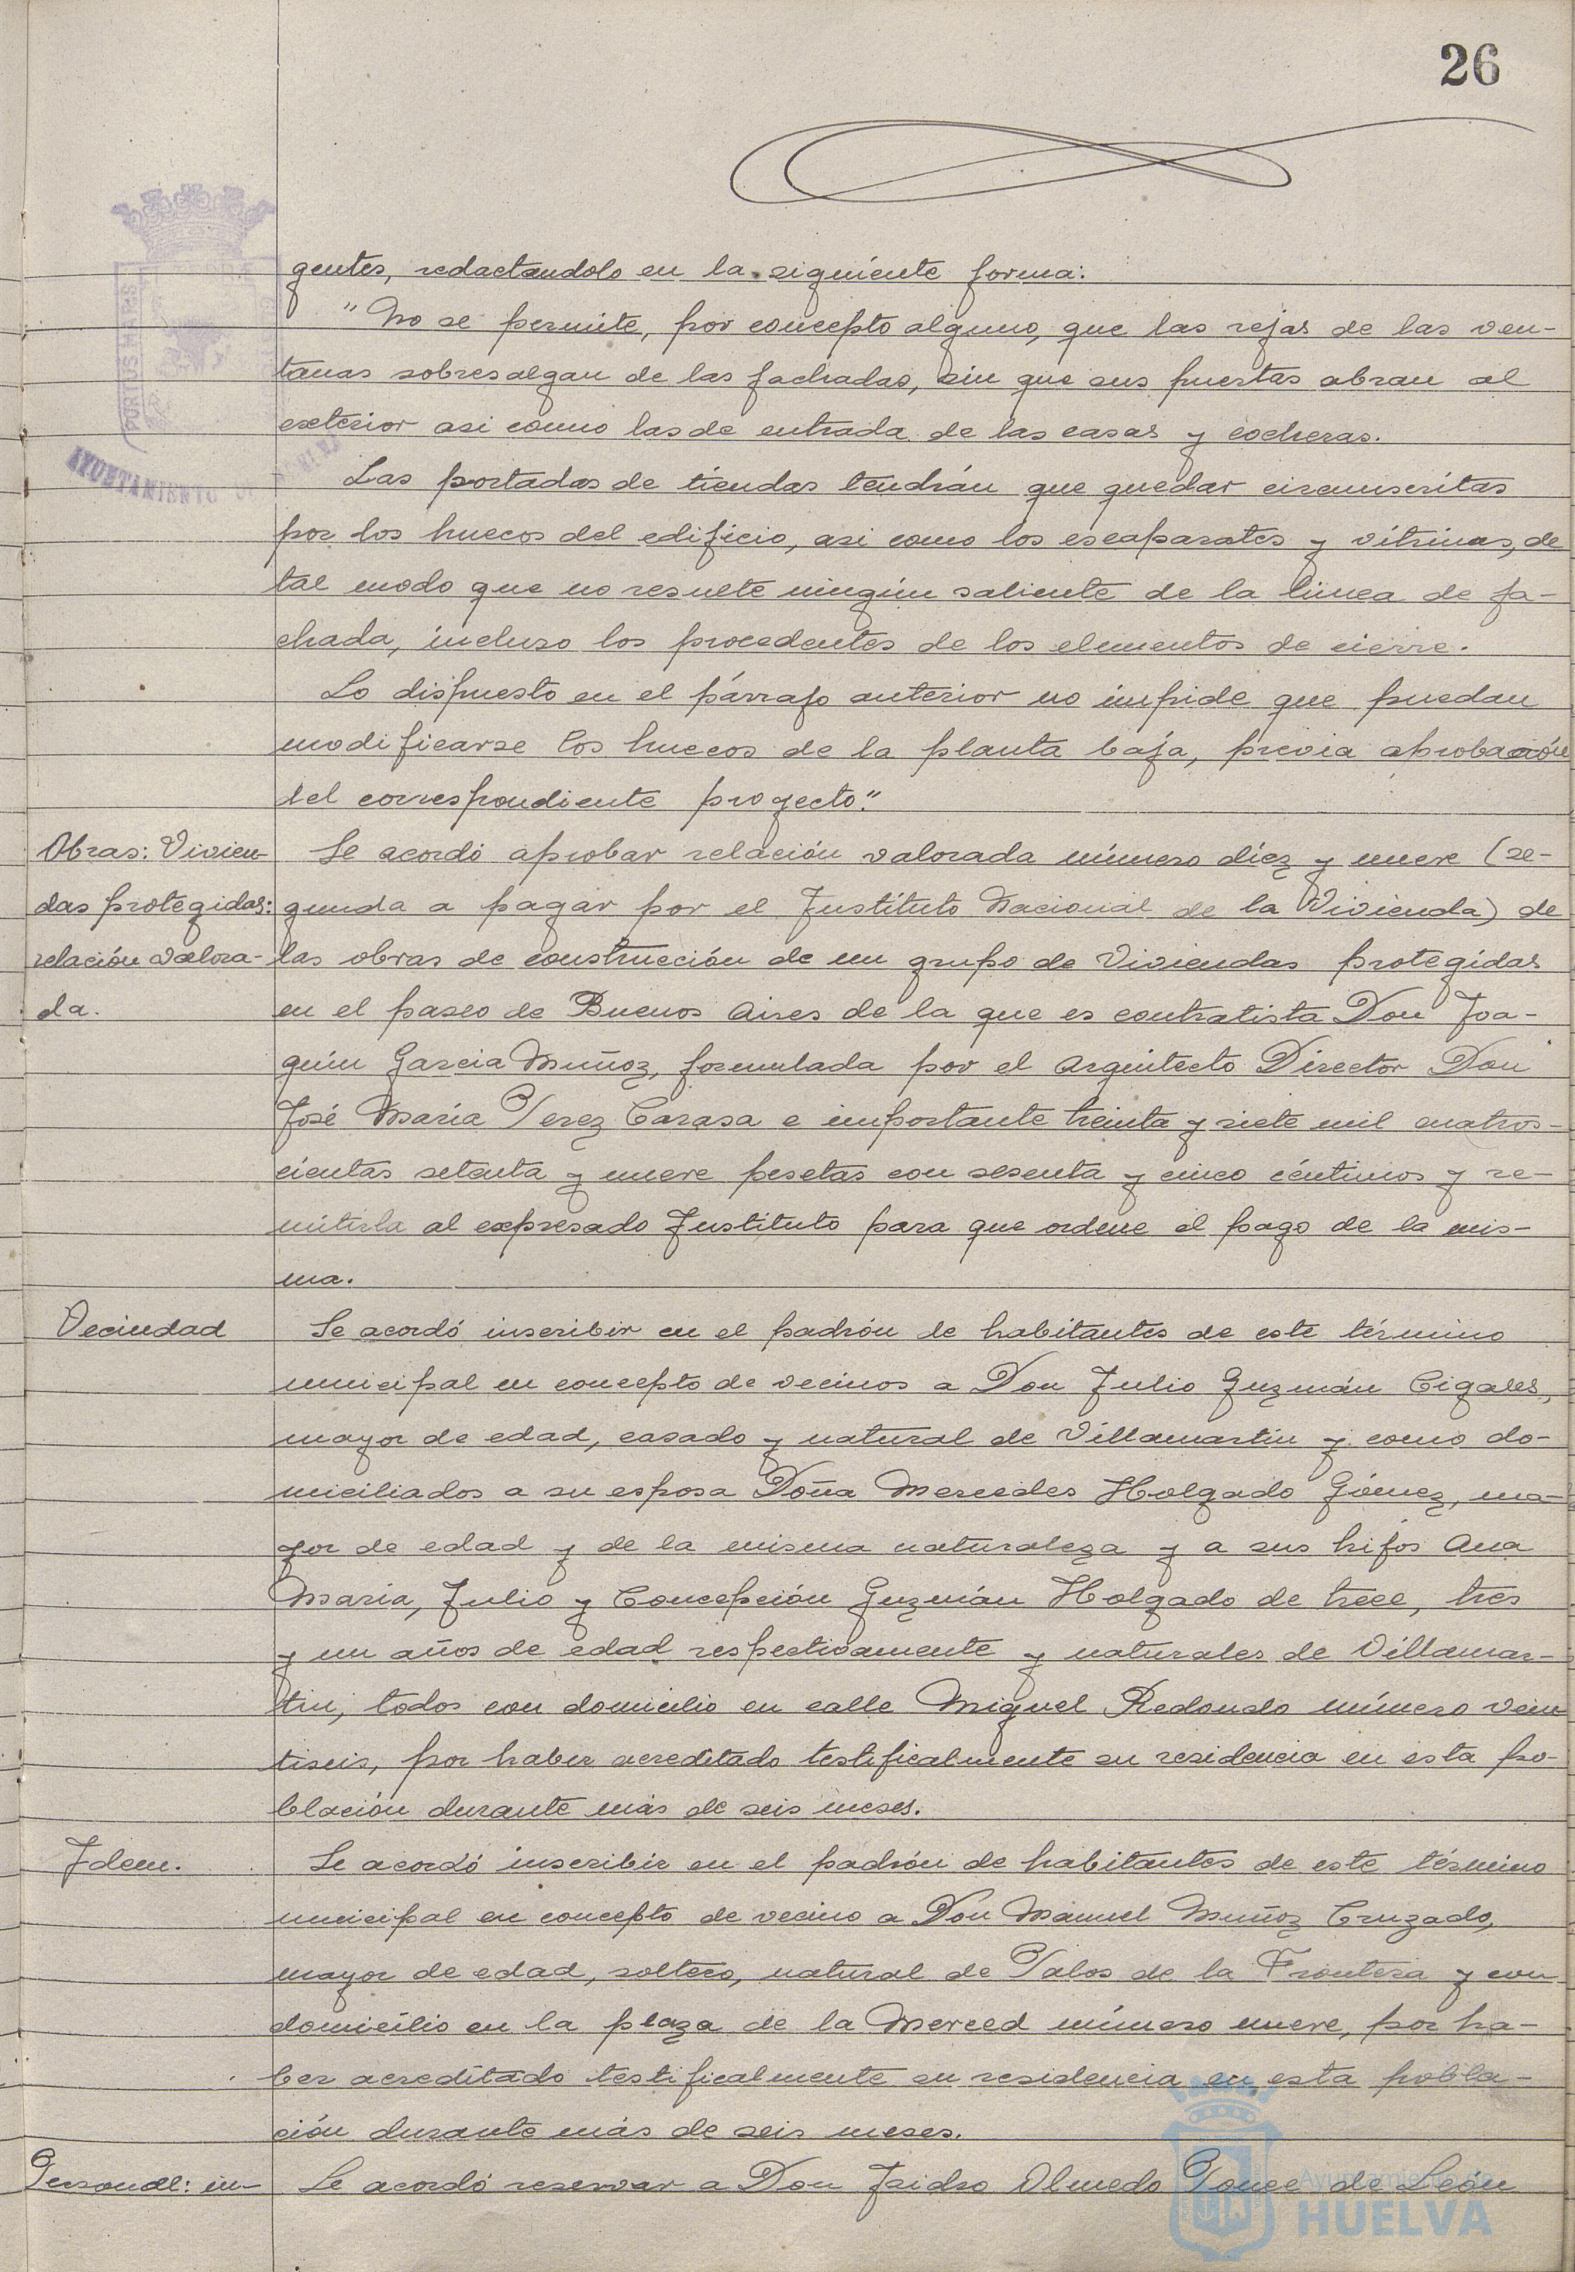 26
gentes, redactandolo en la siguiente forma:
"No se permite, por concepto alguno, que las rejas de las ven-
tanas sobresalgan de las fachadas, sin que sus puertas abran al
exterior asi como las de entrada de las casas y cocheras.
Las portadas de tiendas tendrán que quedar circunscritas
por los huecos del edificio, asi como los escaparates y vitrinas, de
tal modo que no resulte ningún saliente de la linea de fa-
chada, incluso los procedentes de los elementos de cierre.
Lo dispuesto en el párrafo anterior no impide que puedan
modificarse los huecos de la planta baja, previa aprobación
del correspondiente proyecto."
Obras: Vivien-
das protegidas:
relación valora-
da.
Se acordó aprobar relación valorada número diez y nueve (se-
gunda a pagar por el Instituto Nacional de la Vivienda) de
las obras de construcción de un grupo de Viviendas protegidas
en el paseo de Buenos Aires de la que es contratista Don Joa-
quin Garcia Muñoz, formulada por el Arquitecto Director Don
José María Perez Carasa e importante treinta y siete mil cuatros-
cientas setenta y nueve pesetas con sesenta y cinco céntimos y re-
mitirla al expresado Instituto para que ordene el pago de la mis-
ma.
Vecindad
Se acordó inscribir en el padrón de habitantes de este término
municipal en concepto de vecinos a Don Julio Guzmán Cigales,
mayor de edad, casado y natural de Villamartin y como do-
miciliados a su esposa Doña Mercedes Holgado Gómez, ma-
yor de edad y de la misma naturaleza y a sus hijos Ana
María, Julio y Concepción Guzmán Holgado de trece, tres
y un años de edad respectivamente y naturales de Villamar-
tin, todos con domicilio en calle Miguel Redondo número vein
tiseis, por haber acreditado testificalmente su residencia en esta po-
blación durante más de seis meses.
Idem.
Se acordó inscribir en el padrón de habitantes de este término
municipal en concepto de vecino a Don Manuel Muñoz Cruzado,
mayor de edad, soltero, natural de Palos de la Frontera y con
domicilio en la plaza de la Merced número nueve, por ha-
ber acreditado testificalmente su residencia en esta pobla-
ción durante más de seis meses.
Personal: in-
Se acordó reservar a Don Isidro Olmedo Ponce de León
PORTUS MARIS
AYUNTAMIENTO DE
Ayuntamiento de
HUELVA